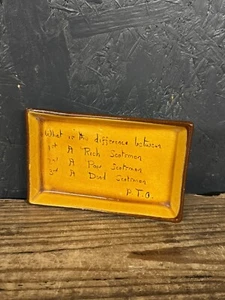 What is the difference between
1st A Rich Scotsman
2nd A Poor Scotsman
3rd A Dead Scotsman
P.T.O.